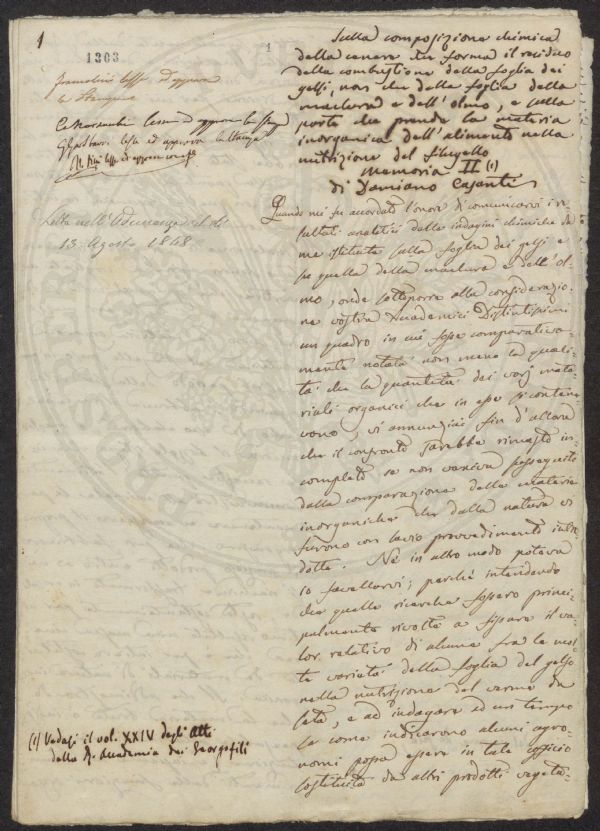 1
1303
1
lesse ed approva
la Stampa
lesse ed approva la Stampa
lesse ed approva la Stampa
lesse ed approva
Letta nell'Adunanza del dì
13. Agosto 1848.
Sulla composizione chimica
della cenere che forma il residuo
della combustione della foglia dei
gelsi, non che della foglia della
maclura e dell'olmo, e sulla
parte che prende la materia
inorganica dell'alimento nella
nutrizione del filugello
Memoria II (1)
di Damiano Casanti
Quando mi fu accordato l'onore di comunicarvi i re-
sultati analitici delle indagini chimiche da
me istituite sulla foglia dei gelsi e
su quella della maclura e dell'ol-
mo, onde sottoporre alla considerazio-
ne vostra Accademici Distintissimi
un quadro in cui fosse comparativa-
mente notata non meno la quali-
tà che la quantità dei varj mate-
riali organici che in esse si contene-
vono, vi annunziai fin d'allora
che il confronto sarebbe rimasto in-
completo se non veniva susseguito
dalla comparazione delle materie
inorganiche che dalla natura vi
furono con savio provvedimento intro-
dotte. Nè in altro modo poteva
io favellarvi; perchè intendendo
che quelle ricerche fossero princi-
palmente rivolte a fissare il va-
lor relativo di alcune fra le mol-
te varietà della foglia del gelso
nella nutrizione del verme da
seta, e ad indagare ad un tempo
se come indicarono alcuni agro-
nomi possa essere in tale officio
sostituita da altri prodotti vegeta-
(1) Vedasi il vol. XXIV degli Atti
della R. Accademia dei Georgofili